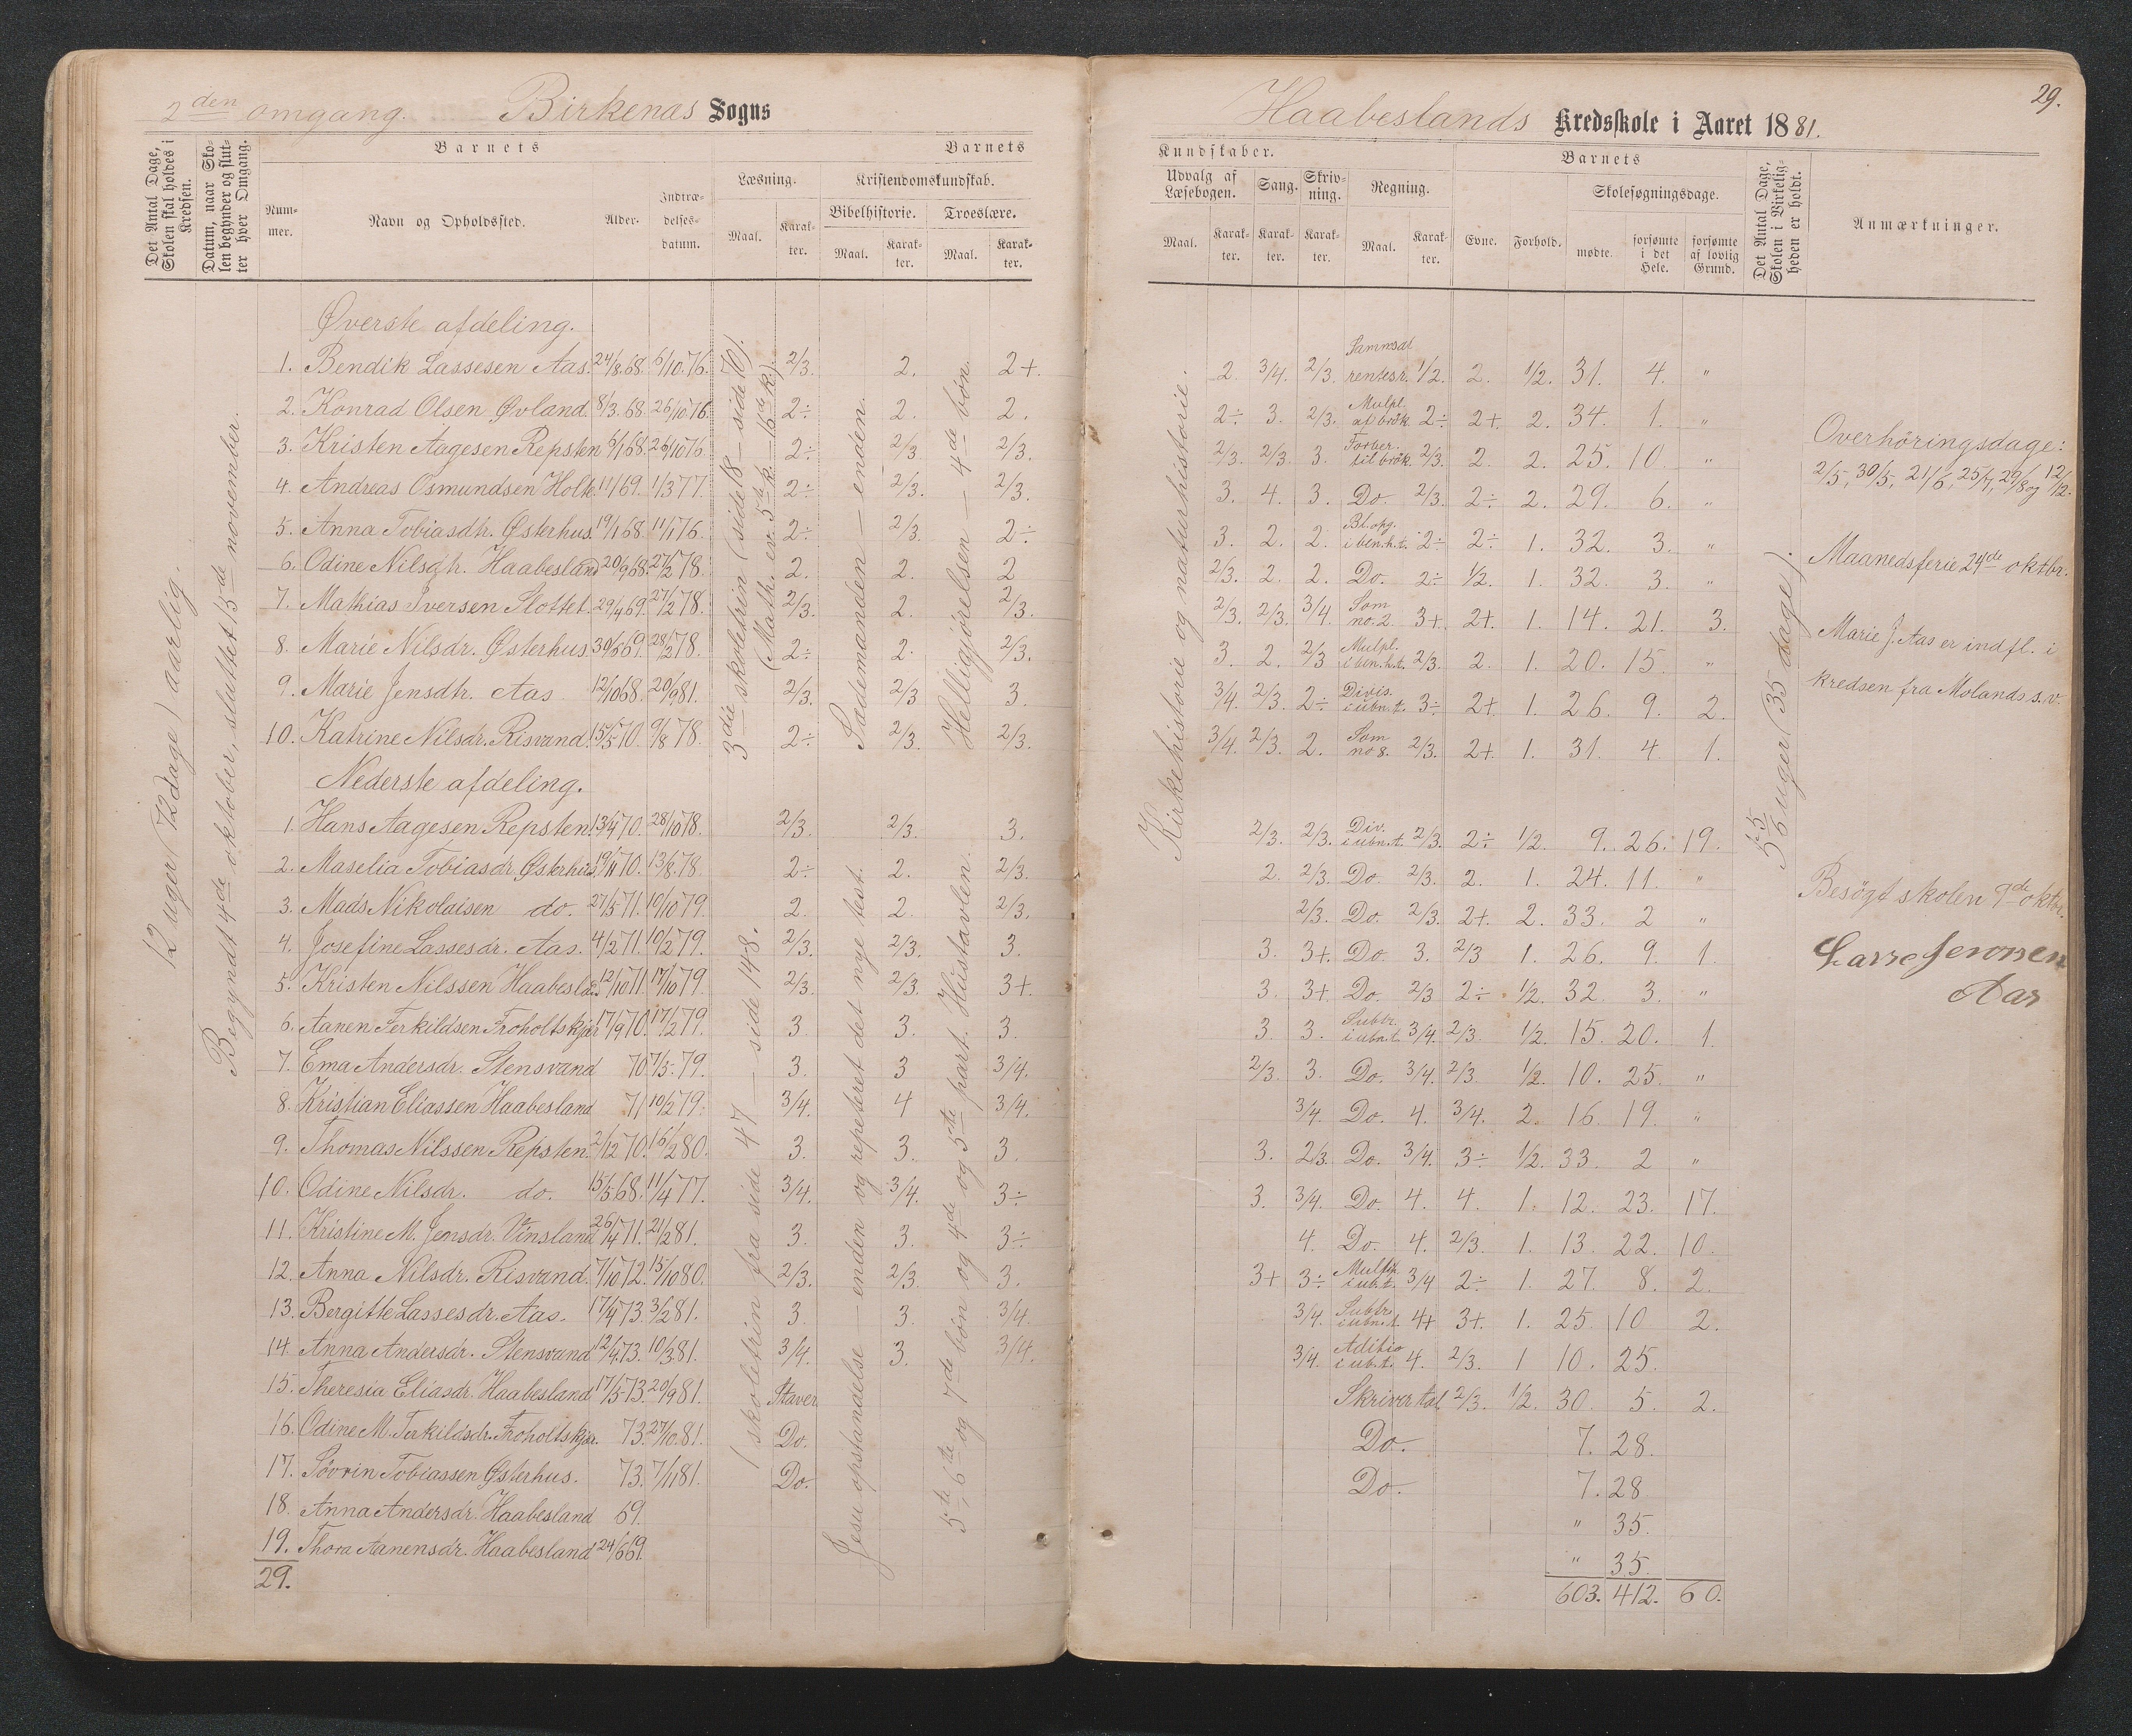 2den omgang. Birkenas Sogns
Haabeslands Kredsskole i Aaret 1881.
29.
Det Antal Dage, Skolen skal holdes i Kredsen.
Datum, naar Skolen begynder og slutter hver Omgang.
Barnets
Nummer.
Navn og Opholdssted.
Alder.
Indtrædelsesdatum.
Barnets
Læsning.
Maal.
Karakter.
Kristendomskundskab.
Bibelhistorie.
Maal.
Karakter.
Troeslære.
Maal.
Karakter.
Kundskaber.
Udvalg af Læsebogen.
Maal.
Karakter.
Sang.
Karakter.
Skrivning.
Karakter.
Regning.
Maal.
Karakter.
Barnets
Evne.
Forhold.
Skolesøgningsdage.
mødte.
forsømte i det Hele.
forsømte af lovlig Grund.
Det Antal Dage, Skolen i Virkeligheden er holdt.
Anmærkninger.
12 uger (72 dage) aarlig.
Begyndt 4de oktober, sluttet 15de november.
3die skoletrin (side 18 – side 70).
(Math. ev. 5te k. – 15de k.)
Sædemanden – enden.
Helliggjørelsen – 4de bøn.
Kirkehistorie og naturhistorie.
Øverste afdeling.
1. Bendik Lassesen Aas. 24/8.68. 6/10.76. 2/3. 2. 2+. 2. 3/4. 2/3. Sammsat rentesr. 1/2. 2. 1/2. 31. 4. "
2. Konrad Olsen Øvland. 8/3.68. 26/10.76. 2÷ 2. 2. 2÷ 3. 2/3. Mulpl. af brøk. 2÷ 2+. 2. 34. 1. "
3. Kristen Aagesen Repsten 6/1.68. 26/10.76. 2÷ 2/3 2/3. 2/3. 2/3. 3. Forber. til brøk. 2/3. 2. 2. 25. 10. "
4. Andreas Osmundsen Holte 1/1.69. 1/3.77. 2÷ 2/3. 2/3. 3. 4. 3. Do. 2/3. 2÷ 2. 29. 6. "
5. Anna Tobiasdtr. Østerhus. 19/1.68. 11/1.76. 2÷ 2/3. 2÷ 3. 2. 2. Bl. opg. i ben.h.t. 2÷ 2÷ 1. 32. 3. "
6. Odine Nilsdtr. Haabesland 20/9.68. 27/2.78. 2. 2. 2 2/3. 2. 2. Do. 2÷ 1/2. 1. 32. 3. "
7. Mathias Iversen Slottet. 29/4.69. 27/2.78. 2/3. 2. 2/3. 2/3. 2/3. 3/4. Som no. 2. 3+. 2+. 1. 14. 21. 3.
8. Marie Nilsdr. Østerhus 30/5.69. 28/2.78. 2÷ 2. 2/3. 3. 2. 2/3 Mulpl. i ben.h.t. 2/3. 2. 1. 20. 15. "
9. Marie Jensdtr. Aas 12/10.68. 20/9.81. 2/3. 2/3 3. 3/4. 2/3. 2÷ Divis. i ubn.t. 3÷ 2+ 1. 26. 9. 2.
10. Katrine Nilsdr. Risvand. 15/5.70. 9/8.78. 2÷ 2/3. 2/3. 3/4. 2/3. 2. Som no 8. 2/3. 2+. 1. 31. 4. 1.
Nederste afdeling.
1 skoletrin fra side 47 – side 148.
Jesu opstandelse – enden og repeteret det nye test.
5te, 6te og 7de bøn og 4de og 5te part. Hustavlen.
1. Hans Aagesen Repsten. 13/4.70. 28/10.78. 2/3. 2/3. 3. 2/3. 2/3. Div. i ubn.t. 2/3. 2÷ 1/2. 9. 26. 19.
2. Maselia Tobiasdr. Østerhus 19/11.70. 13/8.78. 2÷ 2. 2/3. 2. 2/3. Do. 2/3. 2. 1. 24. 11. "
3. Mads Nikolaisen do. 27/5.71. 19/10.79. 2. 2. 2/3. 2/3. Do. 2/3. 2+. 2. 33. 2 "
4. Josefine Lassesdr. Aas. 4/2.71. 10/2.79. 2/3. 2/3. 3. 3. 3+. Do. 3. 2/3 1. 26. 9. 1.
5. Kristen Nilssen Haabesland 12/10.71. 17/10.79. 2/3. 2/3. 3+. 3. 3+ Do. 2/3 2÷ 1/2. 32. 3. "
6. Aanen Terkildsen Froholtskjær 17/9.70. 17/2.79. 3. 3. 3. 3. 3. Subtr. i ubn.t. 3/4. 2/3. 1/2. 15. 20. 1.
7. Ema Andersdr. Stensvand 70. 7/5.79. 3. 3 3/4. 2/3. 3. Do. 3/4. 2/3. 1/2. 10. 25. "
8. Kristian Eliassen Haabesland 71 10/2.79. 3/4. 4 3/4. 3/4. Do. 4. 3/4. 2. 16. 19. "
9. Thomas Nilssen Repsten. 2/12.70. 16/2.80. 3. 3. 3. 3. 2/3. Do. 3/4. 3÷ 1/2. 33. 2 "
10. Odine Nilsdr. do. 15/5.68. 11/4.77. 3/4. 3/4. 3÷ 3. 3/4. Do. 4. 4. 1. 12. 23. 17.
11. Kristine M. Jensdr. Vinsland 26/4.71. 21/2.81. 3. 3. 3÷ 4. Do. 4. 2/3. 1. 13. 22. 10.
12. Anna Nilsdr. Risvand. 7/10.72. 15/10.80. 2/3. 2/3. 3. 3+ 3÷ Multip. i ub.t. 3/4 2÷ 1. 27. 8. 2.
13. Bergitte Lassesdr. Aas. 17/4.73. 3/2.81. 3. 3. 3/4. 3/4. Subtr. i ubn.t. 4+ 3+. 1. 25. 10 2.
14. Anna Andersdr. Stensvand 12/4.73. 10/3.81. 3/4. 3. 3/4. 3/4. Aditio i ub.t. 4. 2/3. 1 10. 25.
15. Theresia Eliasdr. Haabesland 17/5.73. 20/9.81. Staver. Skriver tal 2/3. 1/2. 30. 5. 2.
16. Odine M. Terkildsdr. Froholtskjær. 73. 27/10.81. Do. Do. 7. 28.
17. Sövrin Tobiassen Østerhus. 73. 7/11.81. Do. Do. 7. 28.
18. Anna Andersdr. Haabesland 69. " 35.
19. Thora Aanensdr. Haabesland 24/6.69. " 35.
29. 603. 412. 60.
5 5/6 uger (35 dage).
Overhöringsdage:
2/5, 30/5, 21/6, 25/7, 29/8 og 12/12.
Maanedsferie 24de oktbr.
Marie J. Aas er indfl. i
kredsen fra Molands s.v.
Besögt skolen 9de oktbr.
Lasse Jensen
Aas